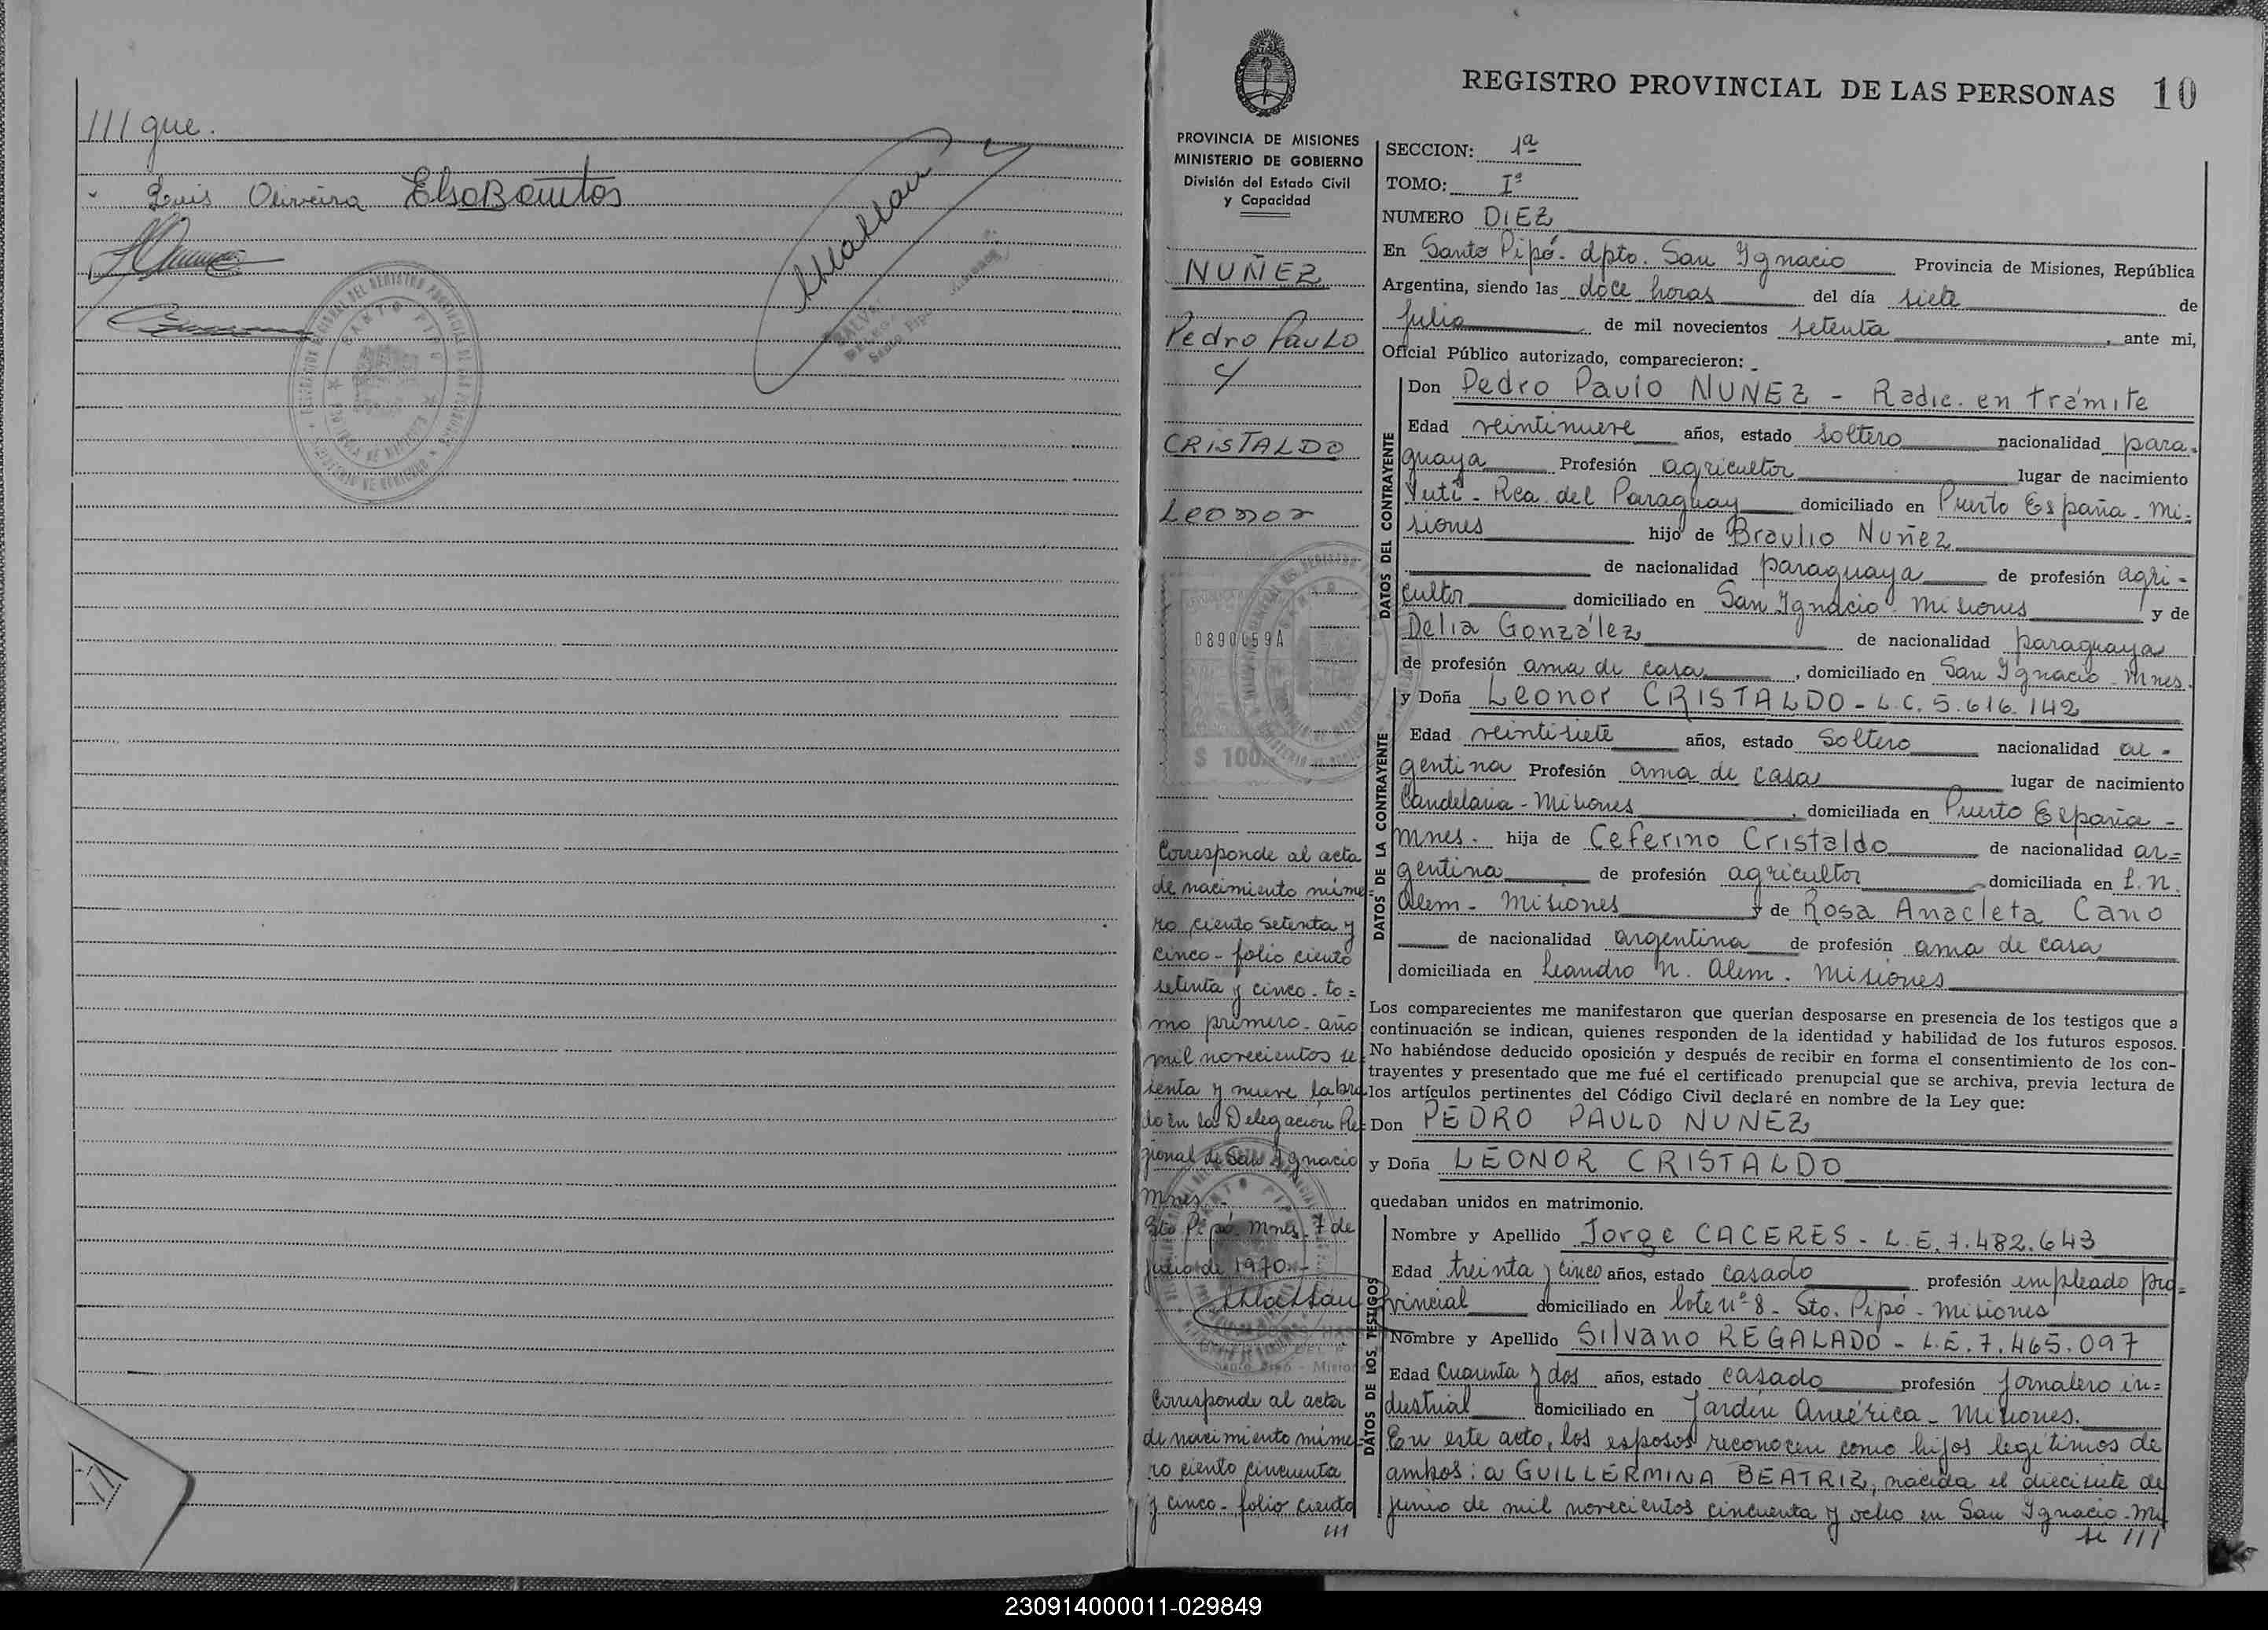 ///que.
Luis Oliveira Elsa Bonitos
REGISTRO PROVINCIAL DE LAS PERSONAS 10
PROVINCIA DE MISIONES
MINISTERIO DE GOBIERNO
División del Estado Civil
y Capacidad
NUÑEZ
Pedro Paulo
y
CRISTALDO
Leonor
0890059A
$ 100
Corresponde al acta
de nacimiento núme-
ro ciento setenta y
cinco - folio ciento
setenta y cinco. to=
mo primero - año
mil novecientos se
senta y nueve labra
do en la Delegación Re=
gional de San Ignacio
Mnes.-
Sto Pipó. Mnes. 7 de
julio de 1970.-
Corresponde al acta
de nacimiento núme-
ro ciento cincuenta
y cinco - folio ciento
///
SECCION: 1ª
TOMO: Iº
NUMERO DIEZ
En Santo Pipó. dpto. San Ignacio Provincia de Misiones, República
Argentina, siendo las doce horas del día siete de
julio de mil novecientos setenta, ante mi,
Oficial Público autorizado, comparecieron:
DATOS DEL CONTRAYENTE
Don Pedro Paulo NUNEZ - Radic. en trámite
Edad veintinueve años, estado soltero nacionalidad para-
guaya Profesión agricultor lugar de nacimiento
Yuti - Rca. del Paraguay domiciliado en Puerto España - Mi-
siones hijo de Braulio Nuñez
de nacionalidad paraguaya de profesión agri-
cultor domiciliado en San Ignacio - Misiones y de
Delia González de nacionalidad paraguaya
de profesión ama de casa, domiciliado en San Ignacio - Mnes.
DATOS DE LA CONTRAYENTE
y Doña Leonor CRISTALDO - L.C. 5.616.142
Edad veintisiete años, estado soltero nacionalidad ar-
gentina Profesión ama de casa lugar de nacimiento
Candelaria - Misiones, domiciliada en Puerto España -
Mnes. hija de Ceferino Cristaldo de nacionalidad ar=
gentina de profesión agricultor domiciliada en L.N.
Alem - Misiones y de Rosa Anacleta Cano
de nacionalidad argentina de profesión ama de casa
domiciliada en Leandro N. Alem. Misiones
Los comparecientes me manifestaron que querían desposarse en presencia de los testigos que a
continuación se indican, quienes responden de la identidad y habilidad de los futuros esposos.
No habiéndose deducido oposición y después de recibir en forma el consentimiento de los con-
trayentes y presentado que me fué el certificado prenupcial que se archiva, previa lectura de
los artículos pertinentes del Código Civil declaré en nombre de la Ley que:
Don PEDRO PAULO NUNEZ
y Doña LEONOR CRISTALDO
quedaban unidos en matrimonio.
DATOS DE LOS TESTIGOS
Nombre y Apellido Jorge CACERES - L.E. 7.482.643
Edad treinta y cinco años, estado casado profesión empleado pro=
vincial domiciliado en lote nº 8 - Sto. Pipó - Misiones
Nombre y Apellido Silvano REGALADO - L.E. 7.465.097
Edad Cuarenta y dos años, estado casado profesión jornalero in=
dustrial domiciliado en Jardín América - Misiones.
En este acto, los esposos reconocen como hijos legítimos de
ambos: a GUILLERMINA BEATRIZ, nacida el diecisiete de
junio de mil novecientos cincuenta y ocho en San Ignacio - Mi
se ///
230914000011-029849